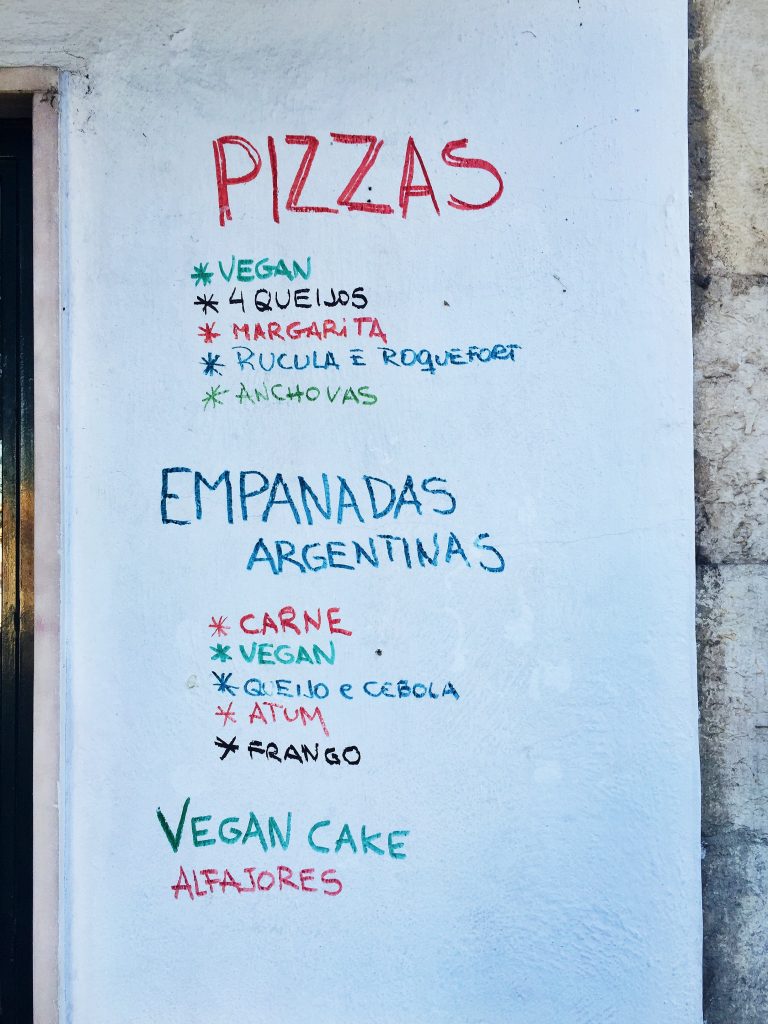 PIZZAS
* VEGAN
* 4 QUEIJOS
* MARGARiTA
* RUCULA E ROQUEFORT
* ANCHOVAS
EMPANADAS
ARGENTINAS
* CARNE
* VEGAN
* QUEIJO e CEBOLA
* ATUM
* FRANGO
VEGAN CAKE
ALFAJORES